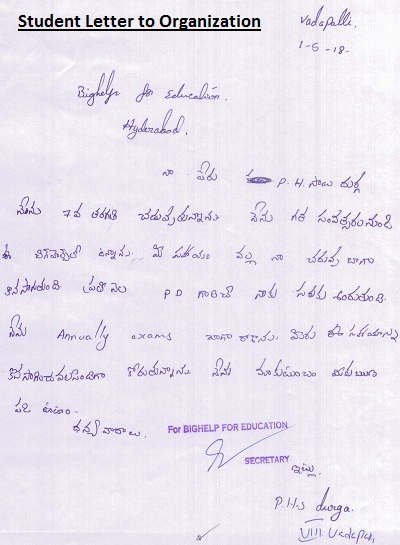 Student Letter to Organization
Vadapalli.
1-6-18.
Bighelp for Education.
Hyderabad.
నా పేరు P.H. సాయి దుర్గ
నేను 7వ తరగతి చదువుతున్నాను నేను గత సంవత్సరం నుండి
ఈ బిగ్‌హెల్ప్‌లో ఉన్నాను. మీ సహాయం వల్ల నా చదువు బాగా
కొనసాగుతుంది ప్రతి నెల P D గారిచే నాకు సరుకు అందుతుంది.
నేను Annually exams బాగా రాశాను. మీరు ఈ సహాయాన్ని
కొనసాగించవలసిందిగా కోరుతున్నాను నేను మా కుటుంబం
ధన్యవాదాలు.
For BIGHELP FOR EDUCATION
SECRETARY
ఇట్లు
P.H.S durga.
VIII Vadapalli